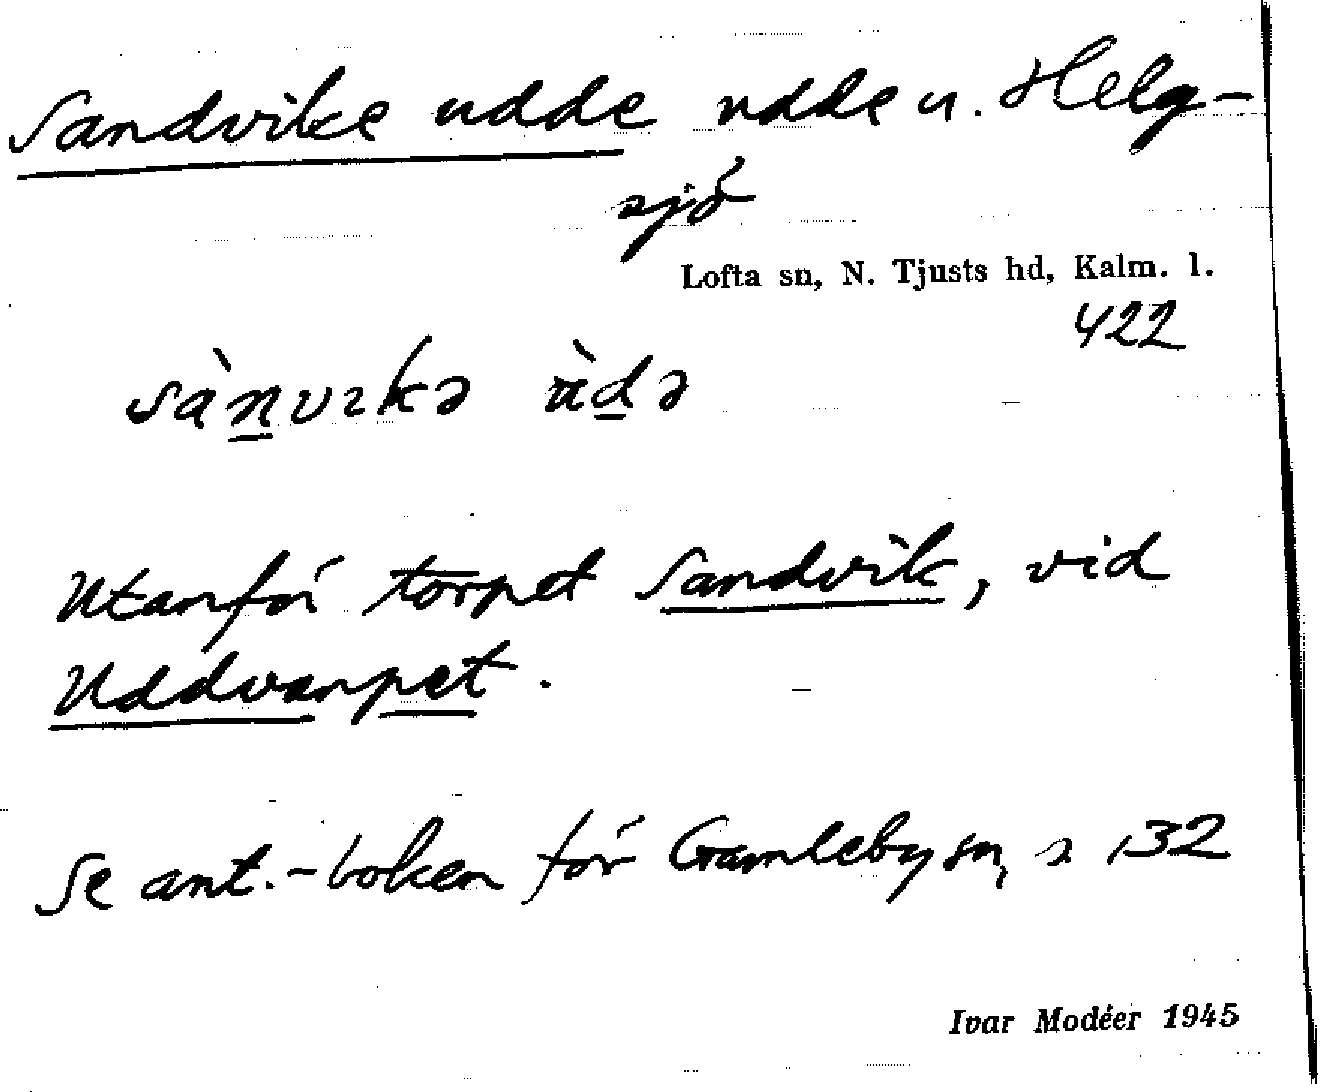 Sandvike udde udde u. Helg-
sjö
Lofta sn, N. Tjusts hd, Kalm. l.
422
sànvɩkə ùdə
Utanför torpet Sandvik, vid
Uddvarpet.
Se ant.-boken för Gamleby sn, s 132
Ivar Modéer 1945